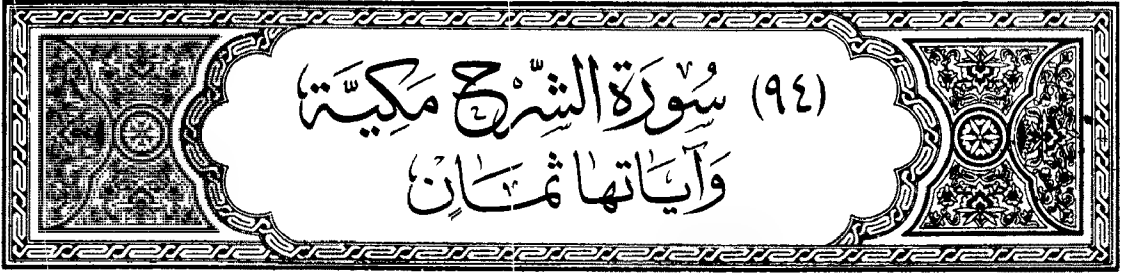 (٩٤) سُورَةُ الشَّرْحِ مَكِيَّة
وَآيَاتُهَا ثَمَانٍ